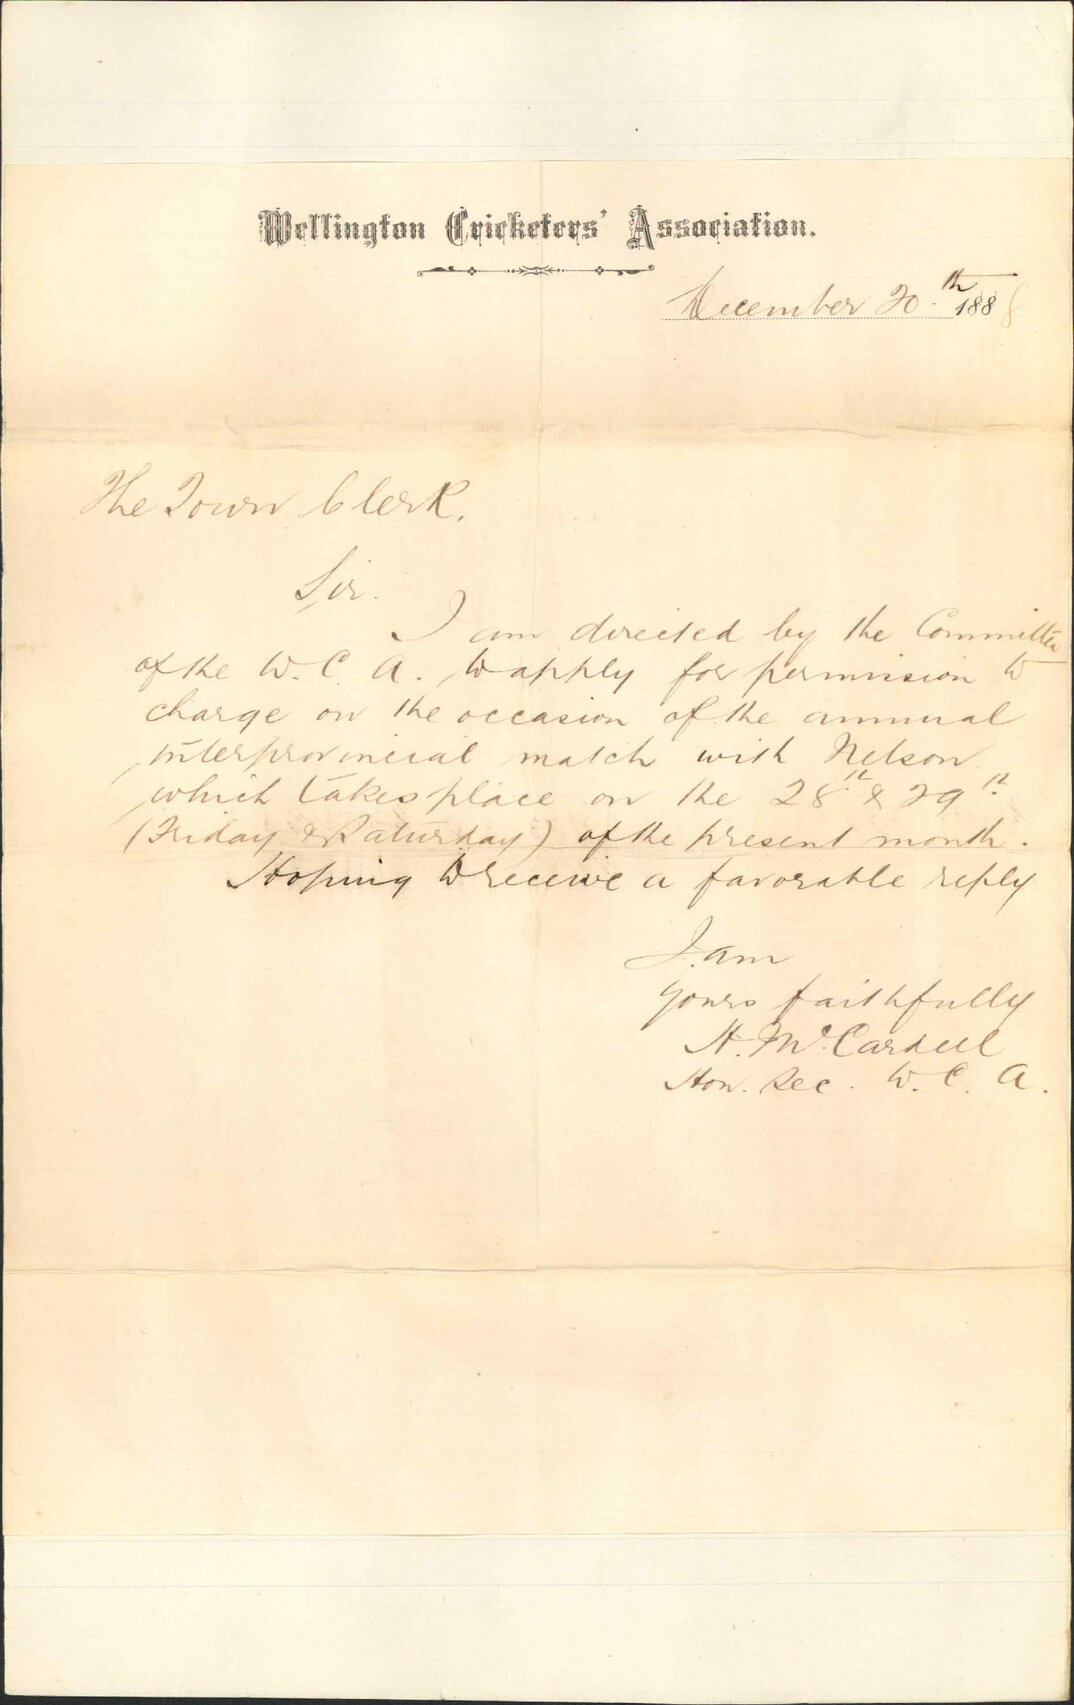 Wellington Cricketers' Association.
December 20th 1888
The Town Clerk.
Sir.
I am directed by the Committee
of the W. C. A. to apply for permission to
charge on the occasion of the annual
interprovincial match with Nelson
which takes place on the 28th & 29th
(Friday & Saturday) of the present month.
Hoping to receive a favorable reply
I am
yours faithfully
H. McCardell
Hon. Sec. W. C. A.